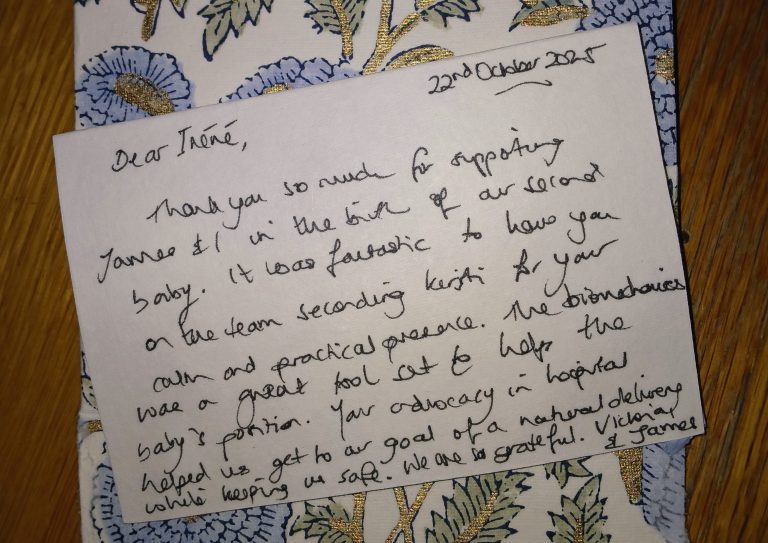 22nd October 2025
Dear Iréné,
Thank you so much for supporting
James & I in the birth of our second
baby. It was fantastic to have you
on the team seconding Kirsti for your
calm and practical presence. The biomechanics
was a great tool set to help the
baby's position. Your advocacy in hospital
helped us get to our goal of a natural delivery
while keeping us safe. We are so grateful. Victoria,
& James